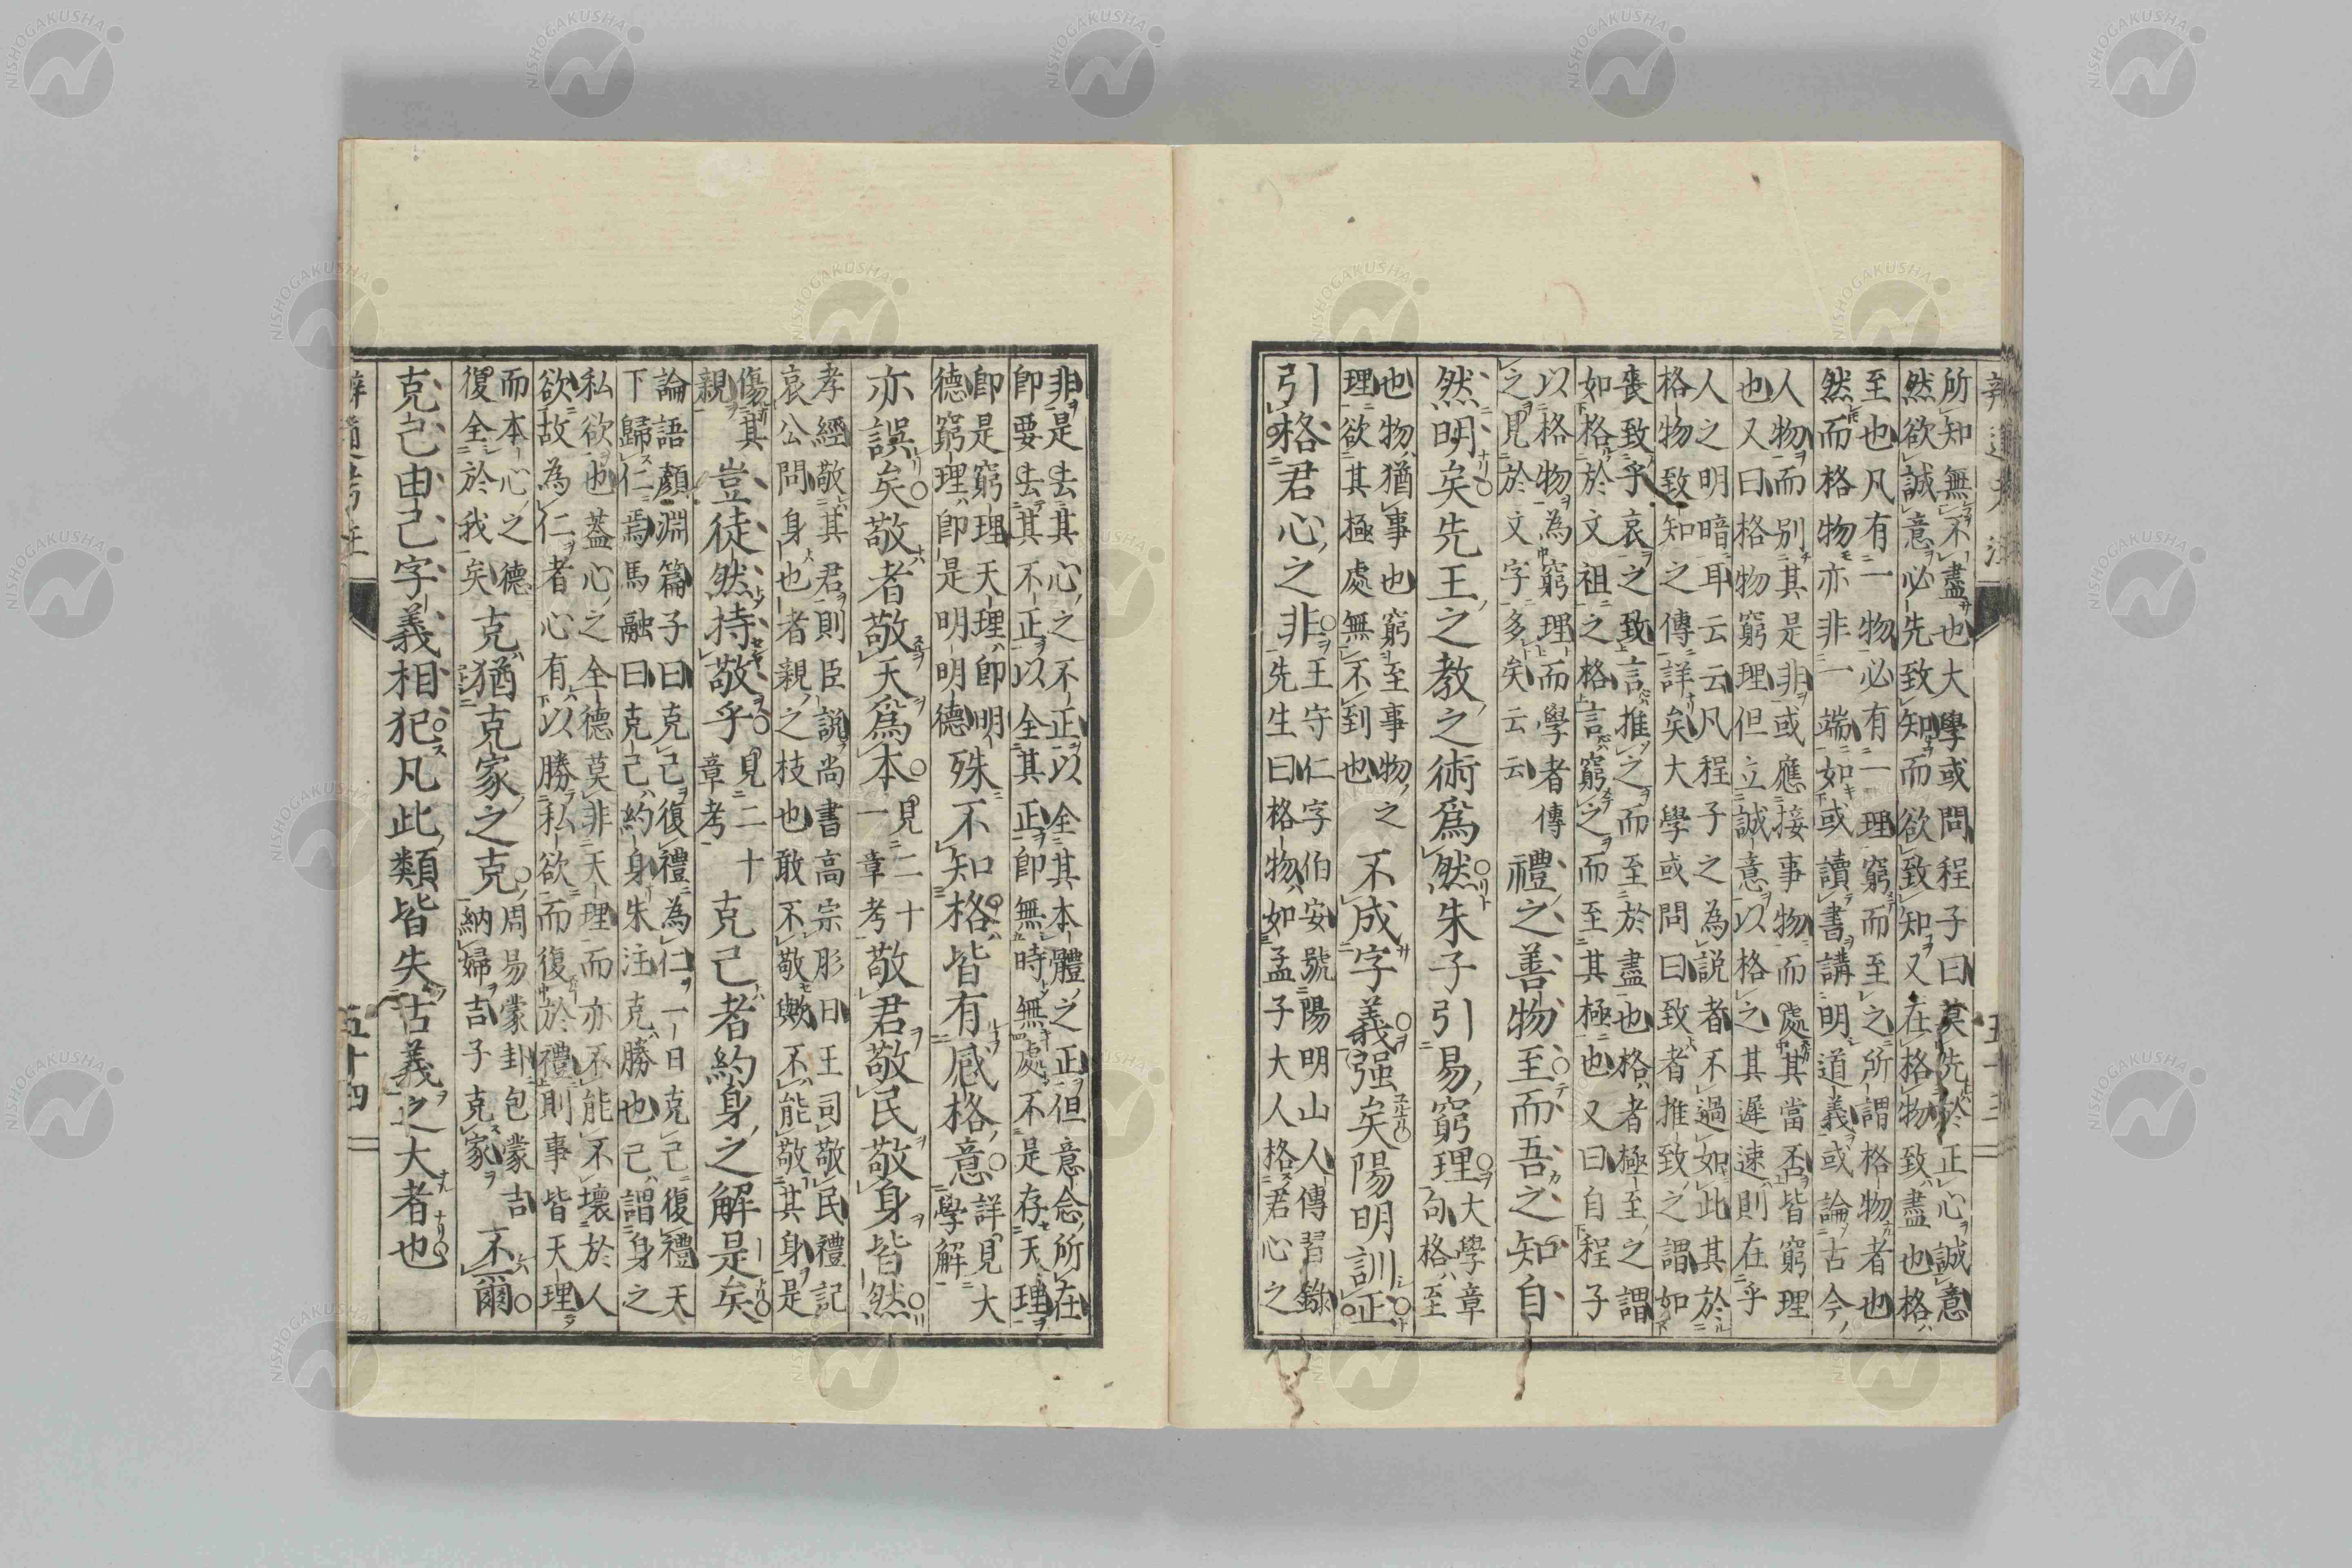 所知無不盡也大學或問程子曰莫先於正心誠意
然欲誠意必先致知而欲致知又在格物致盡也格
至也凡有一物必有一理窮而至之所謂格物者也
然而格物亦非一端如或讀書講明道義或論古今
人物而別其是非或應接事物而處其當否皆窮理
也又曰格物窮理但立誠意以格之其遲速則在乎
人之明暗耳云云凡程子之為説者不過如此其於
格物致知之傳詳矣大學或問曰致者推致之謂如
喪致乎哀之致言推之而至於盡也格者極至之謂
如格於文祖之格言窮之而至其極也又曰自程子
以格物為窮理而學者傳
之見於文字多矣云云
禮之善物至而吾之知自
然明矣先王之教之術爲然朱子引易窮理
大學章
句格至
也物猶事也窮至事物之
理欲其極處無不到也
不成字義强矣陽明訓正
引格君心之非
王守仁字伯安號陽明山人傳習錄
先生曰格物如孟子大人格君心之
非是去其心之不正以全其本體之正但意念所在
即要去其不正以全其正即無時無處不是存天理
即是窮理天理即明
德窮理即是明明德
殊不知格皆有感格意
詳見大
學解
亦誤矣敬者敬天爲本
見二十
一章考
敬君敬民敬身皆然
孝經敬其君則臣説尚書高宗肜日王司敬民禮記
哀公問身也者親之枝也敢不敬與不能敬其身是
傷其
親
豈徒然持敬乎
見二十
章考
克己者約身之解是矣
論語顏淵篇子曰克己復禮為仁一日克己復禮天
下歸仁焉馬融曰克己約身朱注克勝也己謂身之
私欲也蓋心之全德莫非天理而亦不能不壞於人
欲故為仁者心有以勝私欲而復於禮則事皆天理
而本心之德
復全於我矣
克猶克家之克
周易蒙卦包蒙吉
納婦吉子克家
不爾
克己由己字義相犯凡此類皆失古義之大者也
五十四
NISHOGAKUSHA